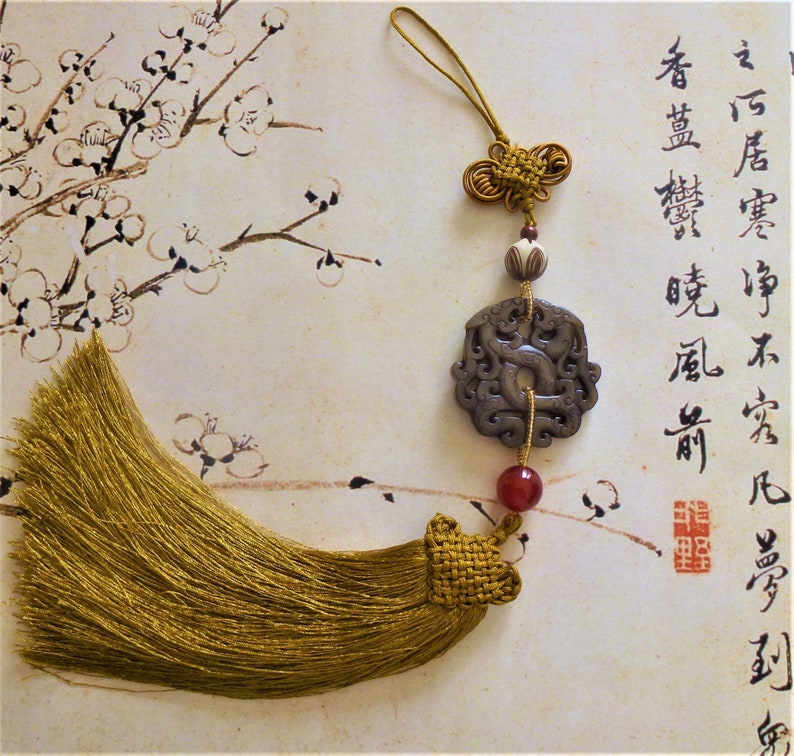 之阿居寒淨不容凡夢到
香蒀鬱曉風前